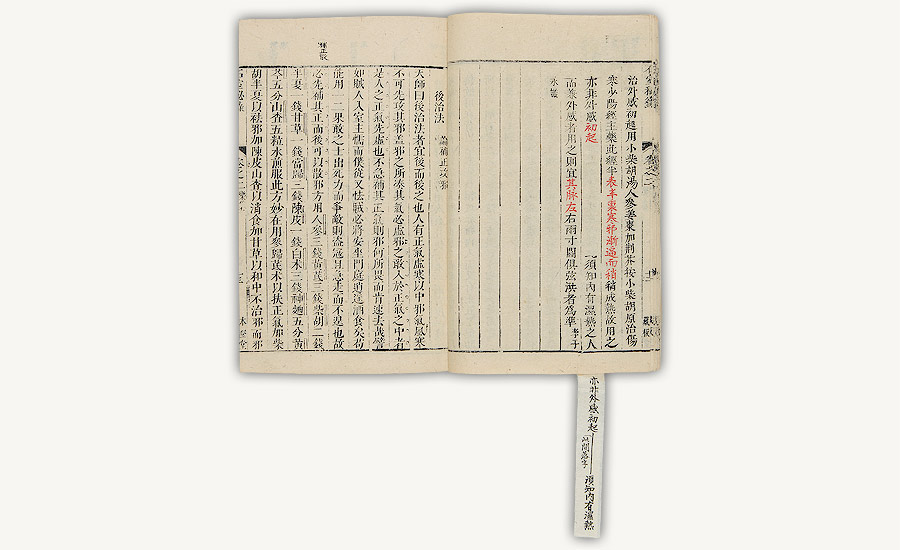 治外感初起用小柴胡湯人參姜棗加荆芥按小柴胡原治傷
寒少陽經主藥此經半表半裏寒邪漸逼而積稍成熱故用之
亦非外感初起
須知內有濕熱之人
而兼外感者用之則宜其脉左右兩寸關俱弦洪者爲準 李子
永識
後治法 論補正攻邪
天師曰後治法者宜後而後之也人有正氣虛寒以中邪氣風寒
不可先攻其邪蓋邪之所湊其氣必虛邪之敢入於正氣之中者
是人之正氣先虛也不急補其正氣則邪何所畏而肯速去哉譬
如賊人入室主懦而僕從又怯賊必將安坐門庭逍遥酒食矣苟
能用一二果敢之士出死力而爭敵則盜寇且急走而不遑也故
必先補其正而後可以散邪方用人參三錢黃芪三錢柴胡二錢
半夏一錢甘草一錢當歸三錢陳皮一錢白术三錢神麯五分黃
芩五分山查五粒水煎服此方妙在用參歸芪术以扶正氣加柴
胡半夏以祛邪加陳皮山查以消食加甘草以和中不治邪而邪
卷之二
亦非外感初起
此間落字
須知內有濕熱